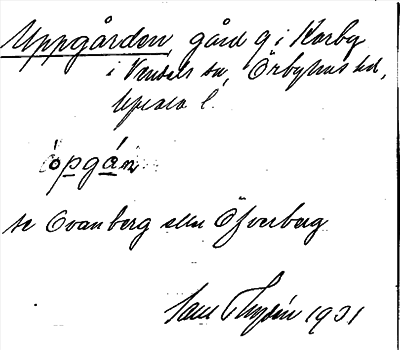 Uppgården, gård 9 i Karby
i Vendels sn, Örbyhus hd,
Upsala l.
òpgán
se Ovanberg eller Öfverberg
1931